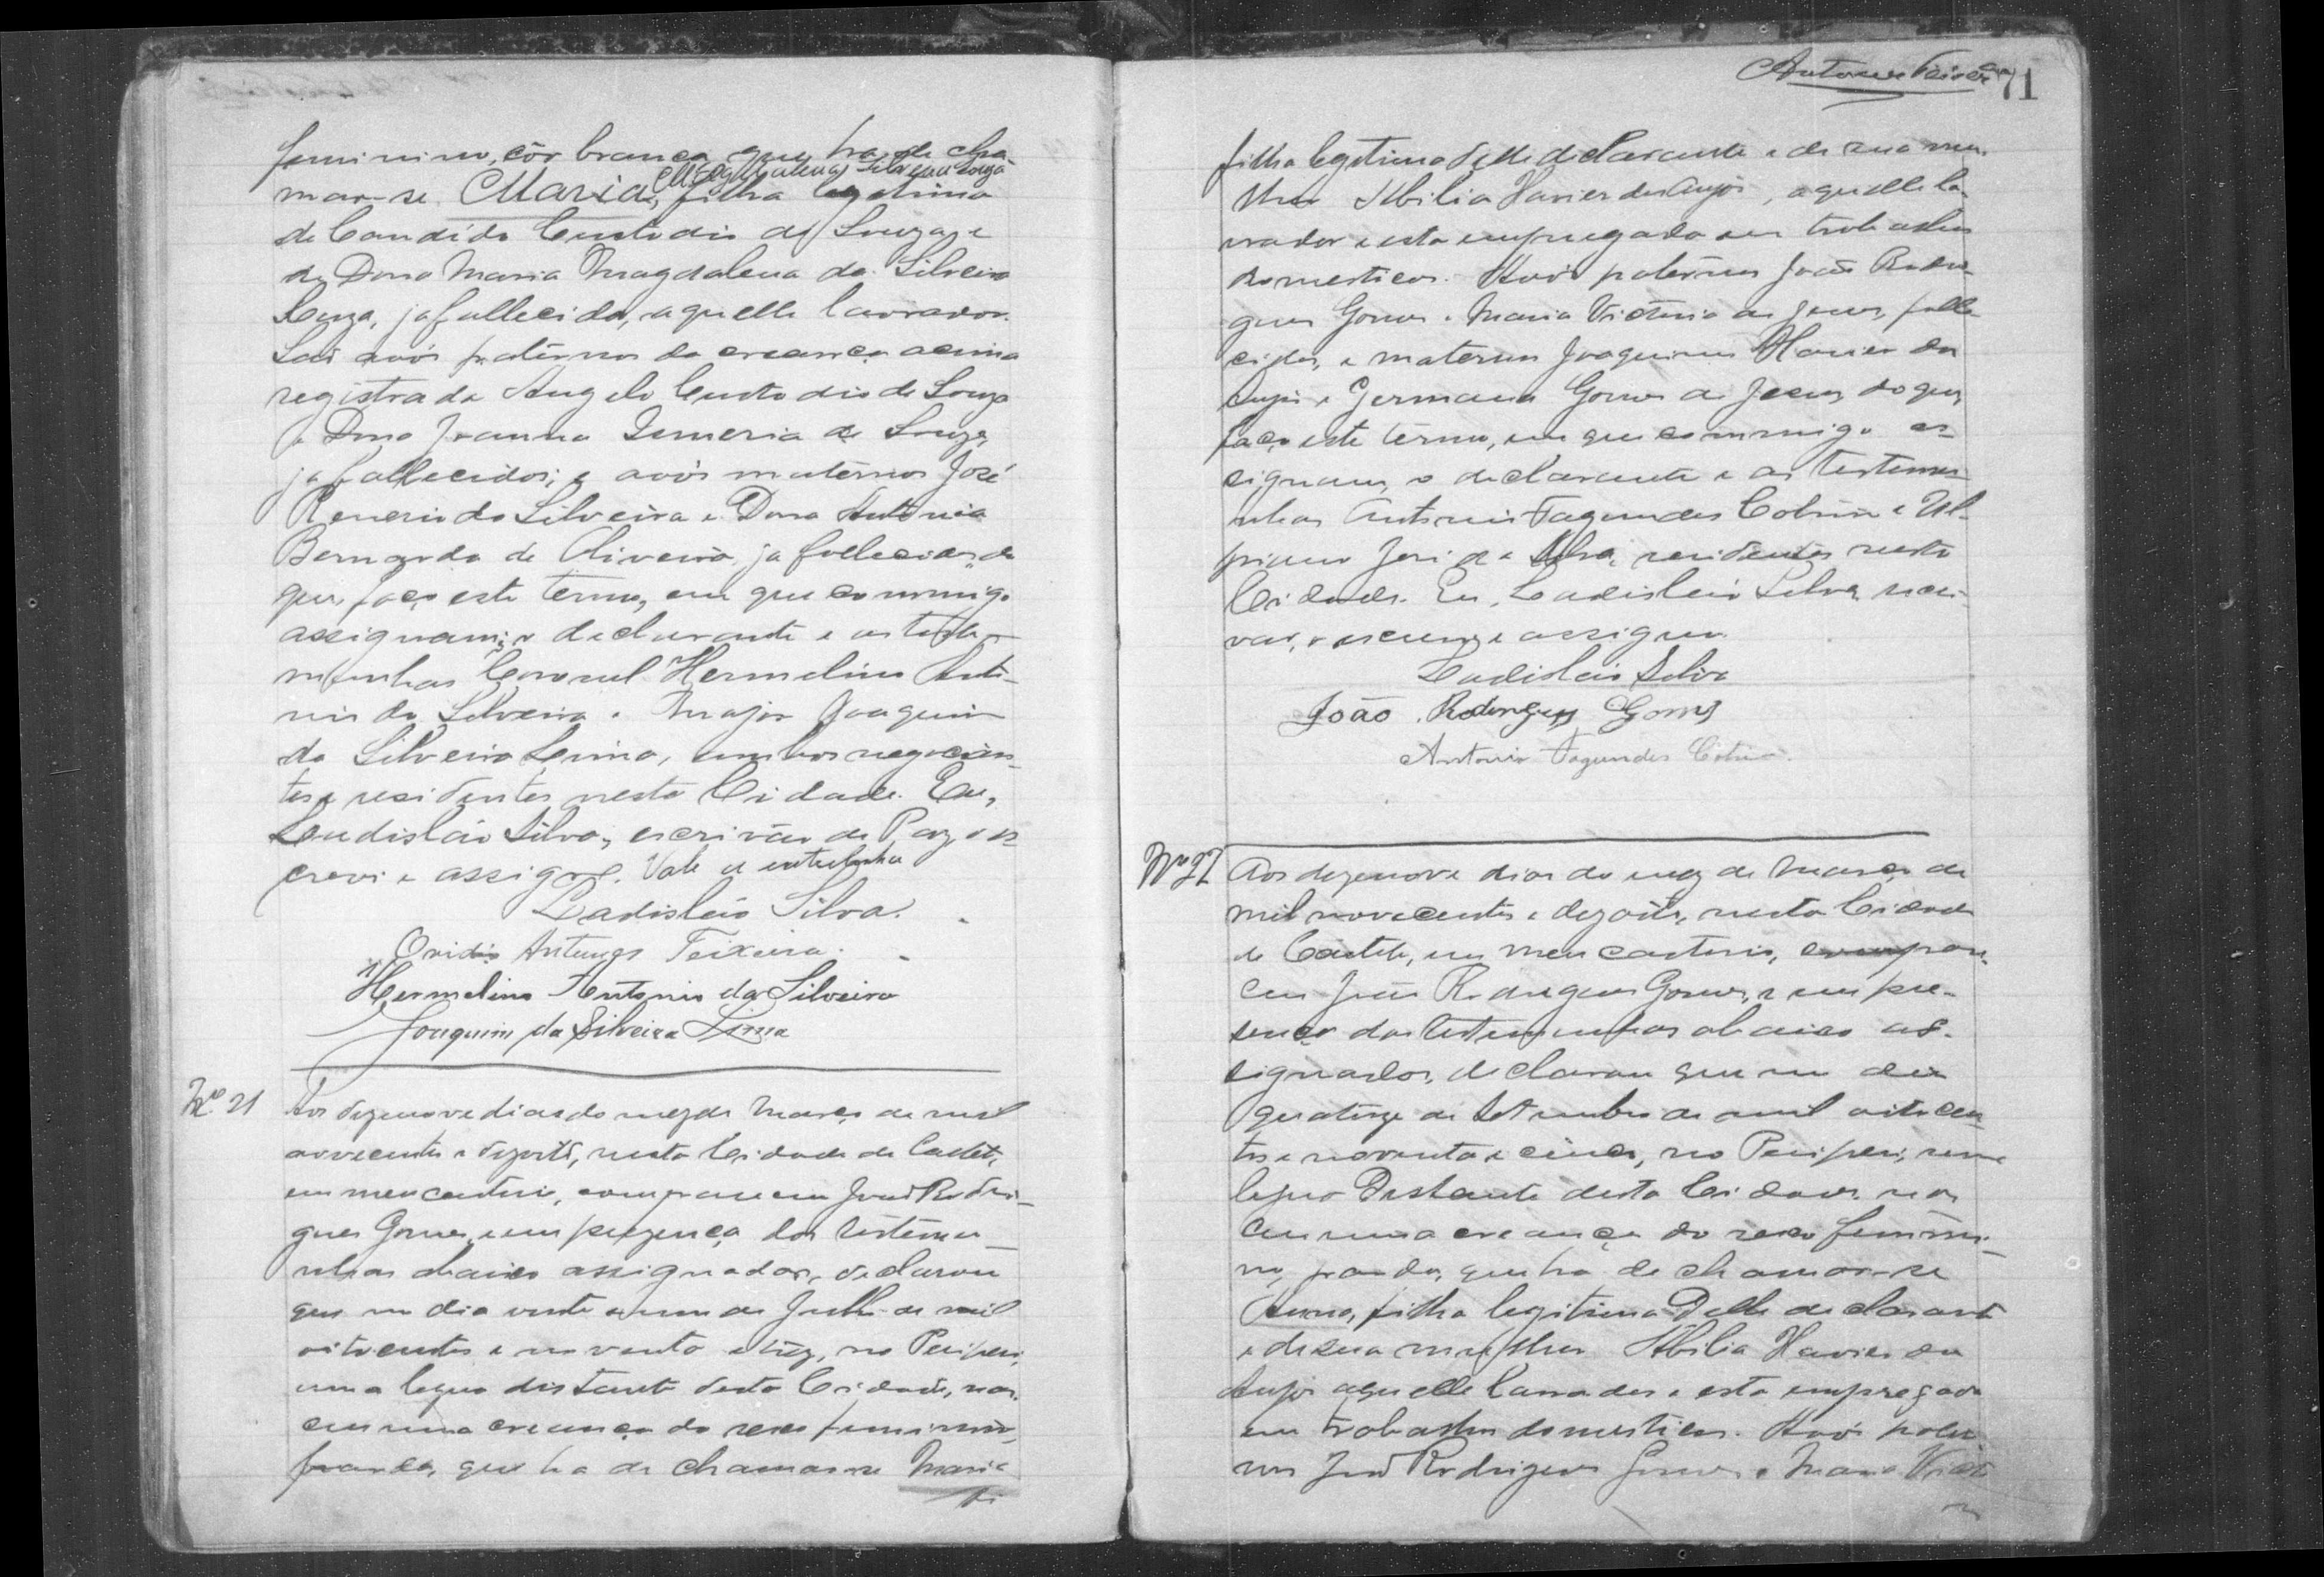 feminino, côr branca que ha de cha-
mar-se Maria Magdalena Silveira Souza, filha legitima
de Candido Custodio de Souza, e
de Dona Maria Magdalena da Silveira
Souza, ja fallecida, aquelle lavrador.
São avós paternos da creança acima
registrada Angelo Custodio de Souza
e Dona Joanna Ismeria de Souza,
ja fallecidos; e avós maternos José
Renerio da Silveira e Dona Antonia
Bernarda de Oliveira, ja fallecidos, do
que faço este termo, em que commigo
assignam, o declarante e as teste-
munhas Coronel Hermelino Anto-
nio da Silveira e Major Joaquim
da Silveira Lima, ambos negocian-
tes e residentes nesta Cidade. Eu,
Ladisláo Silva, escrivão de Paz o es-
crevi e assigno. Vale a entrelinha
Ladisláo Silva.
Ovidio Antunes Teixeira.
Hermelino Antonio da Silveira
Joaquim da Silveira Lima
Nº 21 Aos dezenove dias do mez de Março de mil
novecentos e dezoito, nesta Cidade de Caeteté,
em meu cartorio, compareceu João Rodri-
gues Gomes, e em prezença das testemu-
nhas abaixo assignadas, declarou
que no dia vinte e um de Julho de mil
oitocentos e noventa e trez, no Periperi,
uma legua distante desta Cidade, nas-
ceu uma creança do sexo feminino,
parda, que ha de chamar-se Maria
fi
Antonio Teixeira 71
filha legitima delle declarante e de sua mu-
lher Abilia Xavier dos Anjos, aquelle la-
vrador e esta empregada em trabalhos
domesticos. Avós paternos João Rodri-
gues Gomes e Maria Victoria de Jesus, falle-
cidos, e maternos Joaquim Xavier dos
Anjos e Germana Gomes de Jesus, do que,
faço este termo, em que commigo as-
signam, o declarante e as testemu-
nhas Antonio Fagundes Cotrim e Ul-
piano José da Silva, residentes nesta
Cidade. Eu, Ladisláo Silva, escri-
vão, o escrevy e assigno.
Ladisláo Silva
João Rodrigues Gomes
Antonio Fagundes Cotrim.
Nº 22 Aos dezenove dias do mez de Março de
mil novecentos e dezoito, nesta Cidade
de Caeteté, em meu cartorio, compare-
ceu João Rodrigues Gomes, e em pre-
sença das testemunhas abaixo as-
signadas, declarou que no dia
quatorze de Setembro de mil oitocen-
tos e noventa e cinco, no Periperi, uma
legua distante desta Cidade nas-
ceu uma creança do sexo femini-
no, parda, que ha de chamar-se
Anna, filha legitima delle declarante
e de sua mulher Abilia Xavier dos
Anjos aquelle lavrador e esta empregada
em trabalhos domesticos. Avós pater-
nos João Rodrigues Gomes e Maria Victo